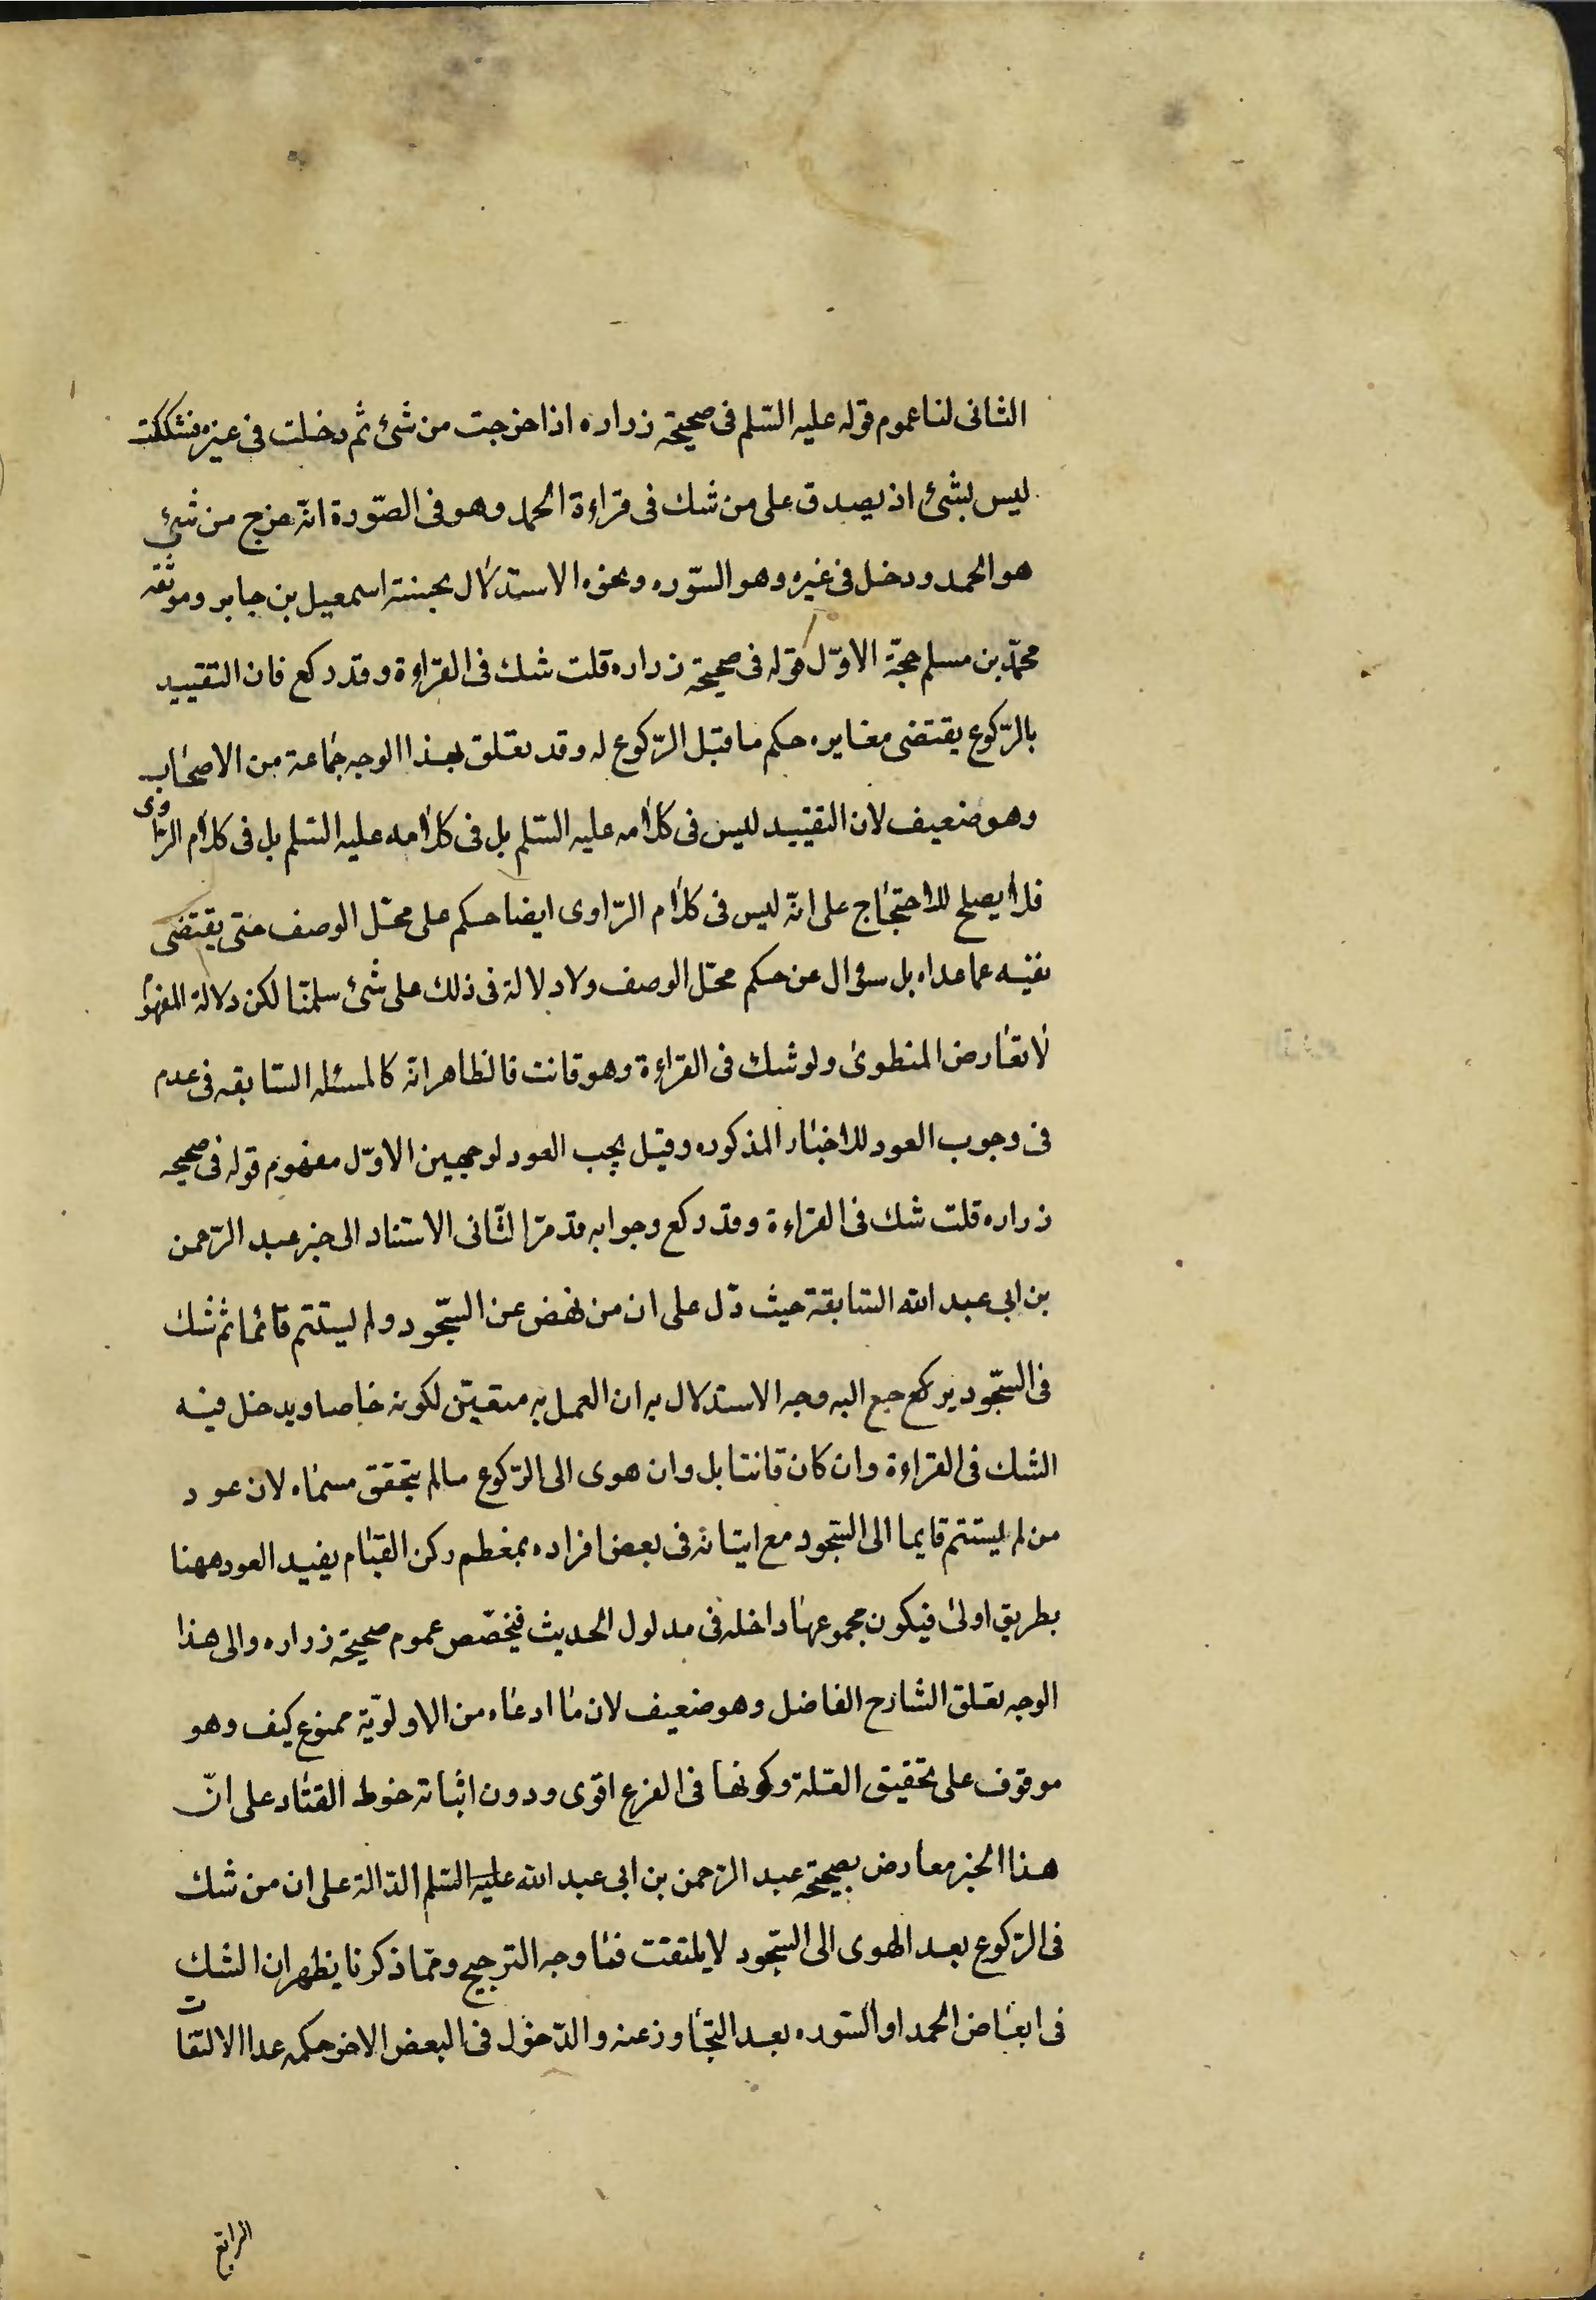 الثانى لنا عموم قوله عليه السّلم فى صحيحة زراره اذا خرجت من شئ ثم دخلت فى غيره فشككت
ليس بشئ اذ يصدق على من شك فى قراءة الحمد وهو فى الصّورة انّه خرج من شئ
هو الحمد ودخل فى غيره وهو السّوره ونحوه الاستدلال بحسنة اسمعيل بن جابر وموثقه
محمّد بن مسلم حجّة الاوّل قوله فى صحيحة زراره قلت شك فى القراءة وقد ركع فان التقييد
بالرّكوع يقتضى مغايره حكم ما قبل الرّكوع له وقد تعلق بهذا الوجه جماعة من الاصحاب
وهو ضعيف لان التقييد ليس فى كلامه عليه السّلم بل فى كلامه عليه السّلم بل فى كلام الرّاوى
فلا يصلح للاحتجاج على انّه ليس فى كلام الرّاوى ايضا حكم على محلّ الوصف حتى يقتضى
نفيه عما عداه بل سؤال عن حكم محلّ الوصف ولا دلالة فى ذلك على شئ سلمنا لكن دلالة المفهوم
لا تعارض المنطوق ولو شك فى القراءة وهو قانت فالظاهر انه كالمسئله السّابقه فى عدم
فى وجوب العود للاخبار المذكوره وقيل يجب العود لوجهين الاوّل مفهوم قوله فى صحيحه
زراره قلت شك فى القراءة وقد ركع وجوابه قد مرّ الثّانى الاستناد الى خبر عبد الرّحمن
بن ابى عبد الله السّابقة حيث دّل على ان من نهض عن السّجود ولم يستتم قائما ثم شك
فى السّجود يركع جع اليه وجه الاستدلال به ان العمل به متعيّن لكونه خاصا ويدخل فيه
الشك فى القراءة وان كان قانتا بل وان هوى الى الرّكوع ما لم يتحقق مسماه لان عود
من لم يستتم قايما الى السّجود مع اتيانه فى بعض افراده بمعظم ركن القيام يفيد العود ههنا
بطريق اولى فيكون مجموعها داخله فى مدلول الحديث فيخصّص عموم صحيحة زراره والى هذا
الوجه تعلق الشارح الفاضل وهو ضعيف لان ما ادعاه من الاولويّة ممنوع كيف وهو
موقوف على تحقيق العلة وكونها فى الفرع اقوى ودون اثباته خوط القتاد على انّ
هذا الخبر معارض بصحيحة عبد الرّحمن بن ابى عبد الله عليه السّلم الدّالة على ان من شك
فى الرّكوع بعد الهوى الى السّجود لا يلتفت فما وجه الترجيح وممّا ذكرنا يظهر ان الشك
فى ابعاض الحمد او السّوره بعد التجاوز عنه والدّخول فى البعض الاخر حكمه عدا الالتفات
الرابع